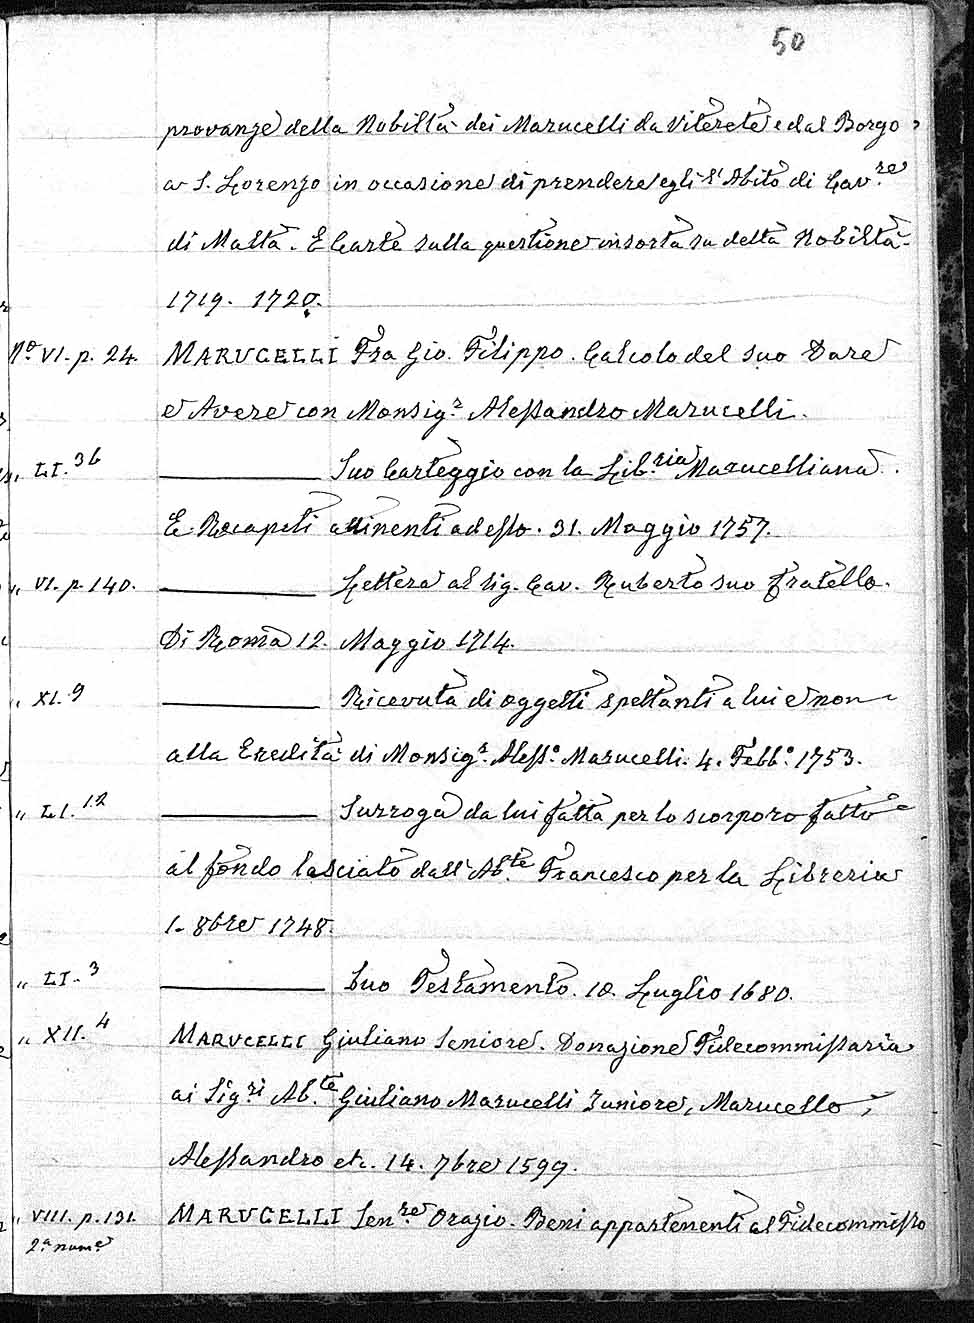 50
provanze della Nobiltà dei Marucelli da Viterete e dal Borgo
a S. Lorenzo in occasione di prendere egli l'Abito di Cav.re
di Malta. E Carte sulla questione insorta su detta Nobiltà.
1719. 1720.
No. VI. p. 24. MARUCELLI Fra Gio. Filippo. Calcolo del suo Dare
e Avere con Monsig.r Alessandro Marucelli.
„ LI. 36 ——— Suo Carteggio con la Lib.ria Marucelliana.
E Recapiti attinenti ad esso. 31. Maggio 1757.
„ VI. p. 140. ——— Lettera al Sig. Cav. Ruberto suo fratello.
Di Roma 12. Maggio 1714.
„ XI. 9 ——— Ricevuta di oggetti spettanti a lui e non
alla Eredità di Monsig.r Aless.o Marucelli. 4. Febb.o 1753.
„ LI. 12 ——— Surroga da lui fatta per lo scorporo fatto
al fondo lasciato dall'Ab.te Francesco per la Libreria
1. 8bre 1748.
„ LI. 3 ——— Suo Testamento. 10. Luglio 1680.
„ XII. 4 MARUCELLI Giuliano Seniore. Donazione Fidecommissaria
ai Sig.ri Ab.te Giuliano Marucelli Juniore, Marucello,
Alessandro etc. 14. 7bre 1599.
„ VIII. p. 131. MARUCELLI Sen.re Orazio. Beni appartenenti al Fidecommisso
2.a num.e